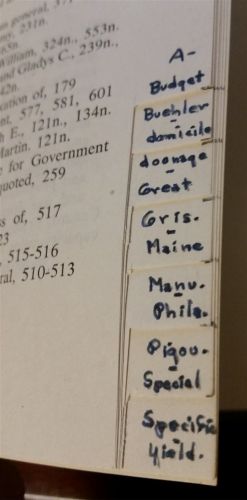 general, 37
any, 231n.
65n.
William, 324n., 553n.
and Gladys C., 239n.,
42n.
ation of, 179
nt, 577, 581, 601
h E., 121n., 134n.
Martin, 121n.
e for Government
quoted, 259
ss of, 517
23
, 515-516
ral, 510-513
A-
Budget
Buehler
-
domicile
doomage
-
Great
Gris.
-
Maine
Manu.
-
Phila.
Pigou.
-
Special
Specific
-
Yield.